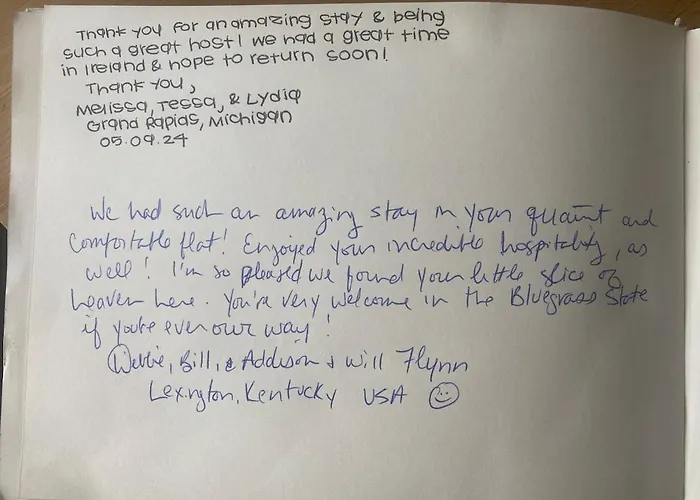 Thank you for an amazing stay & being
such a great host! we had a great time
in Ireland & hope to return soon!
Thank you,
Melissa, Tessa, & Lydia
Grand Rapids, Michigan
05.09.24
We had such an amazing stay in your quaint and
comfortable flat! Enjoyed your incredible hospitality, as
well! I'm so pleased we found your little slice of
heaven here. You're very welcome in the Bluegrass State
if you're ever our way!
Debbie, Bill, & Addison & Will Flynn
Lexington, Kentucky USA ☺